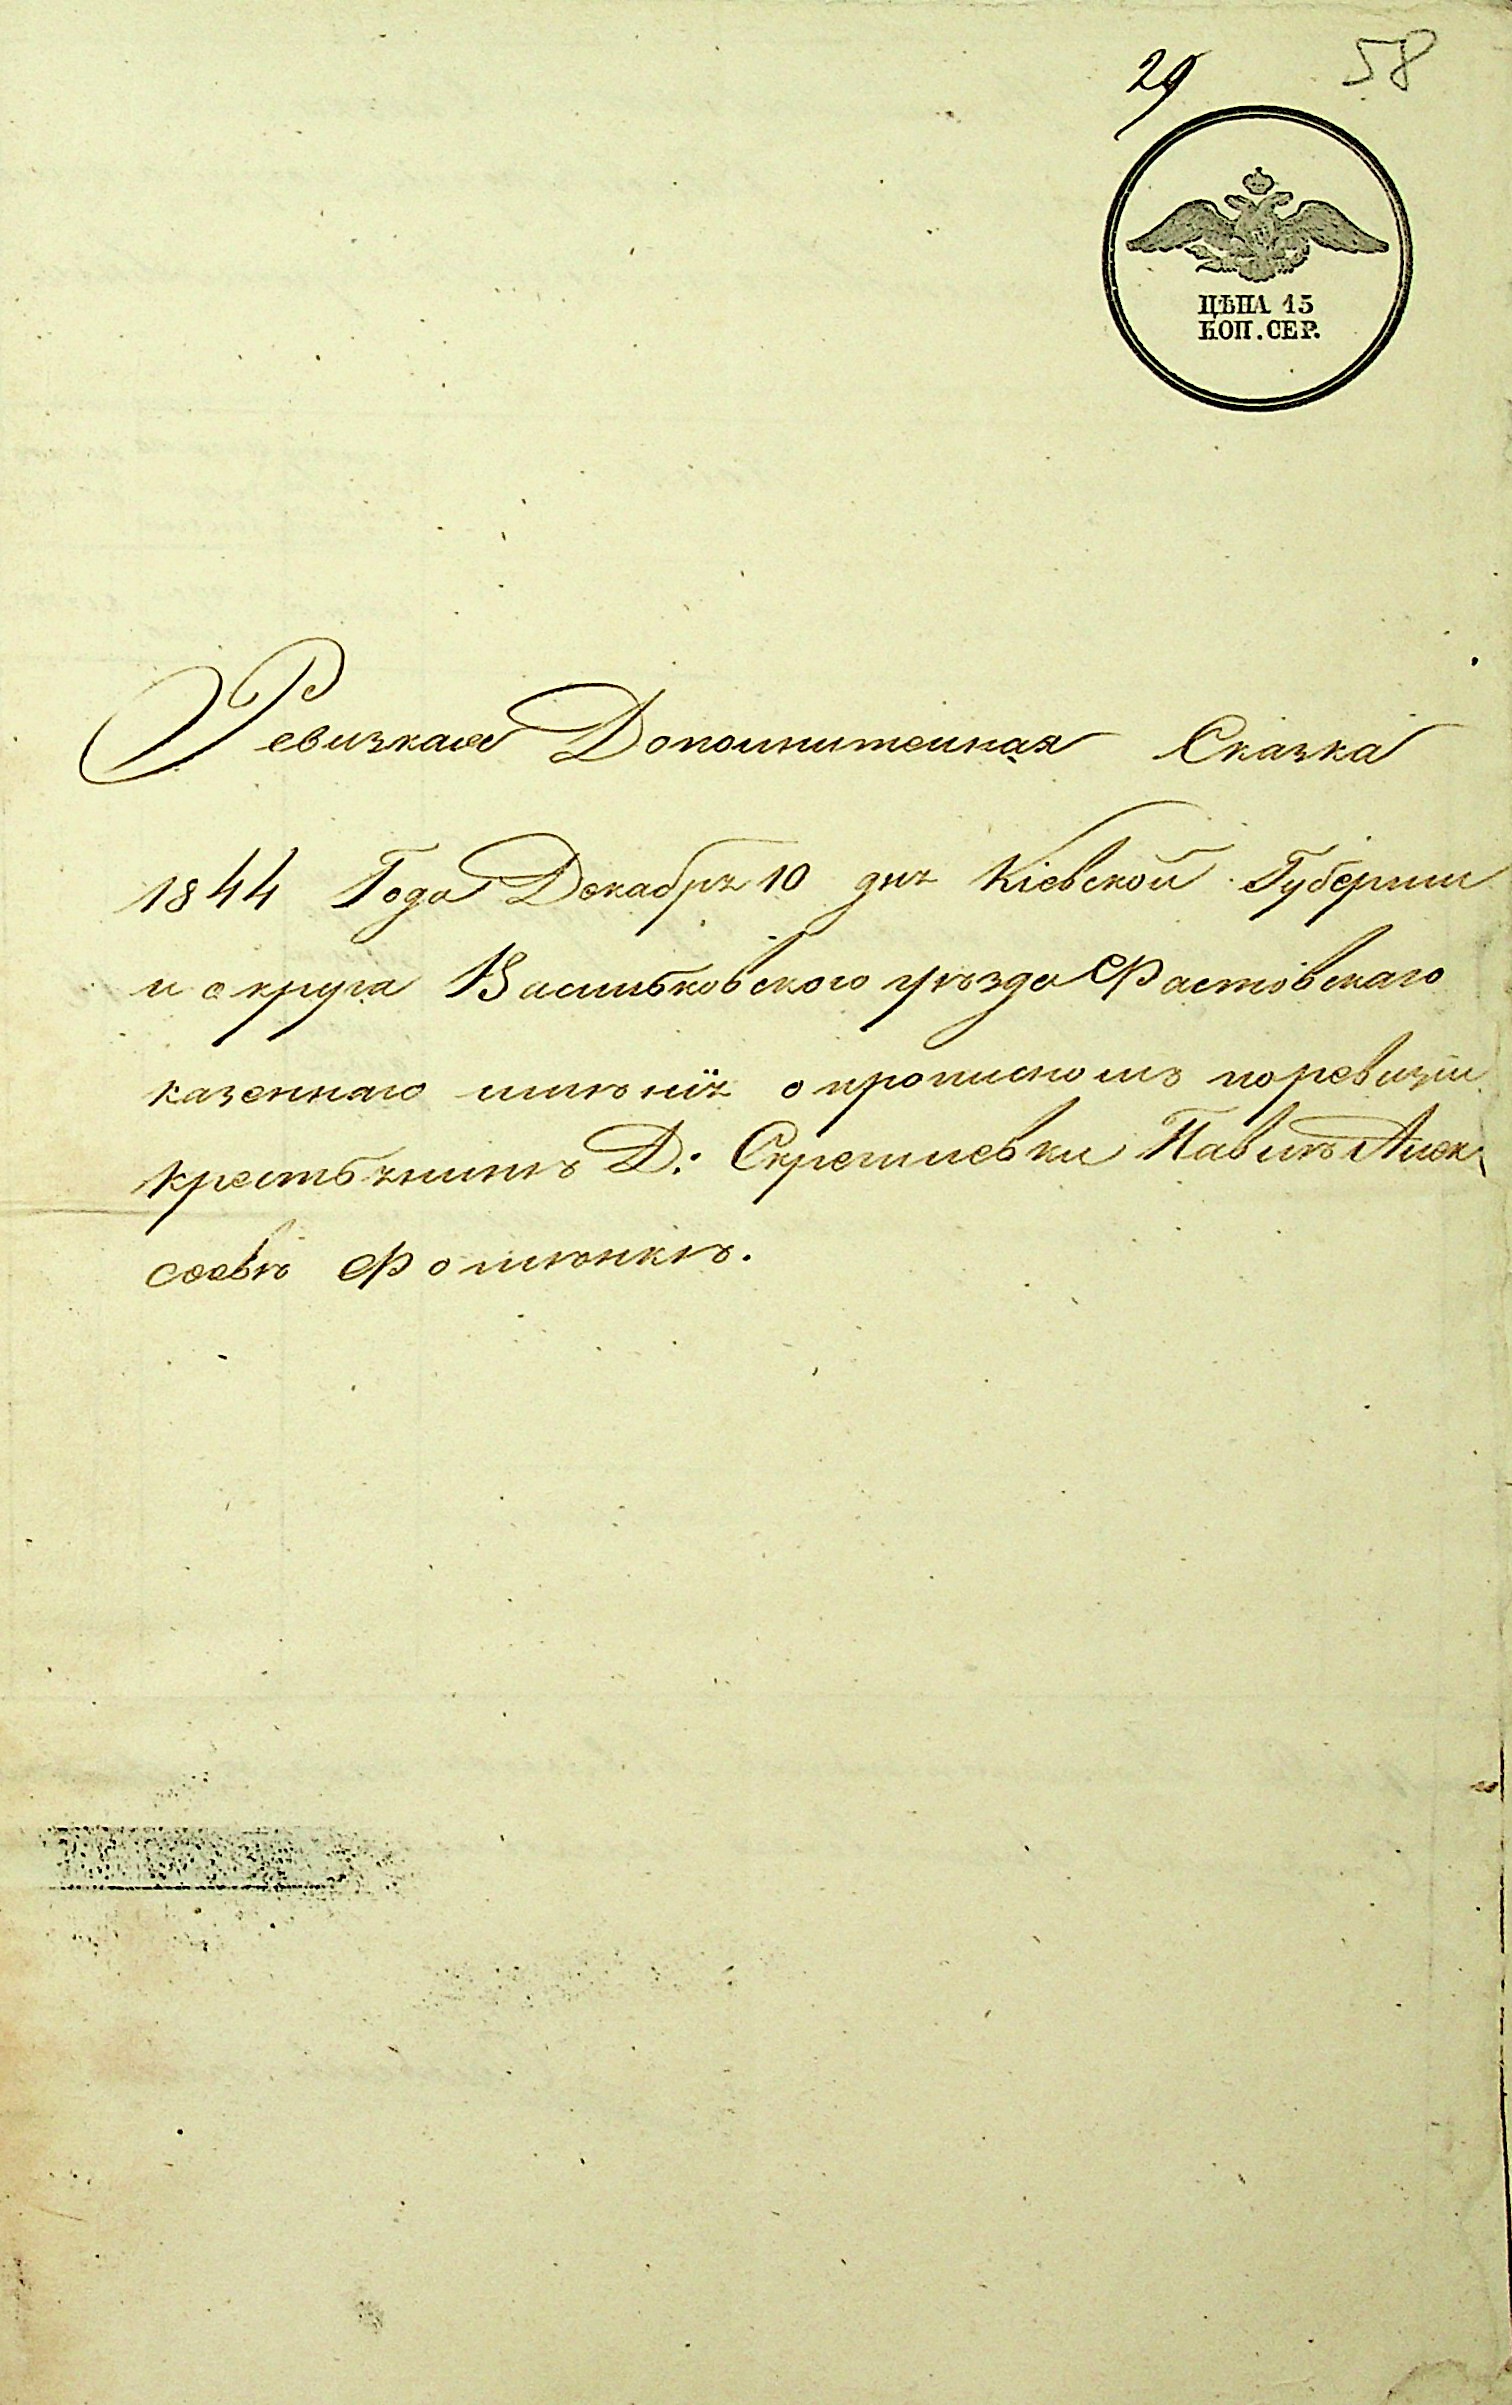 29
58
ЦѢНА 15
КОП. СЕР.
Ревизкая Дополнителная Сказка
1844 Года Декабря 10 дня Кіевской Губерніи
и округа Васильковского уѣзда Фастовскаго
казеннаго имѣнія о прописном по ревизіи
крестьянинѣ Д: Скретшевки Павлѣ Алек
сѣевѣ Фоменкѣ.